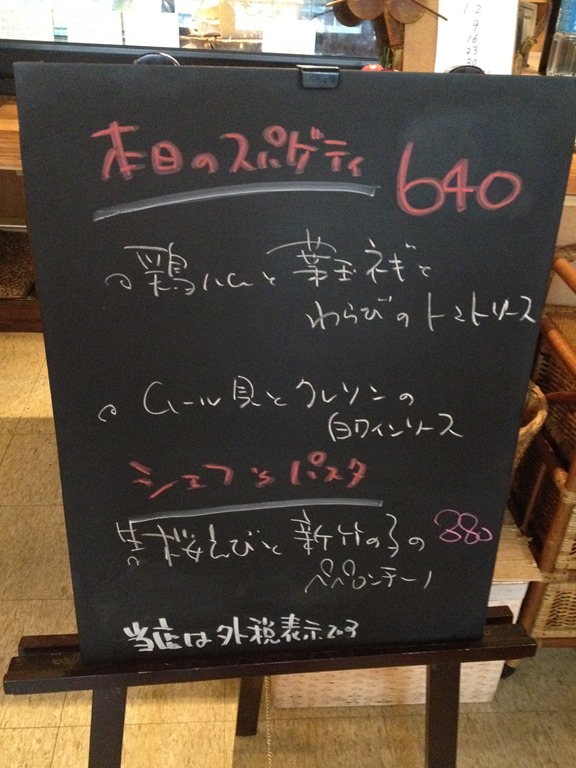 12
9
16
23
30
本日のスパゲティ 640
鶏ハムと葉玉ネギと
わらびのトマトソース
ムール貝とクレソンの
白ワインソース
シェフ'sパスタ
桜えびと新竹の子の 880
ペペロンチーノ
当店は外税表示です